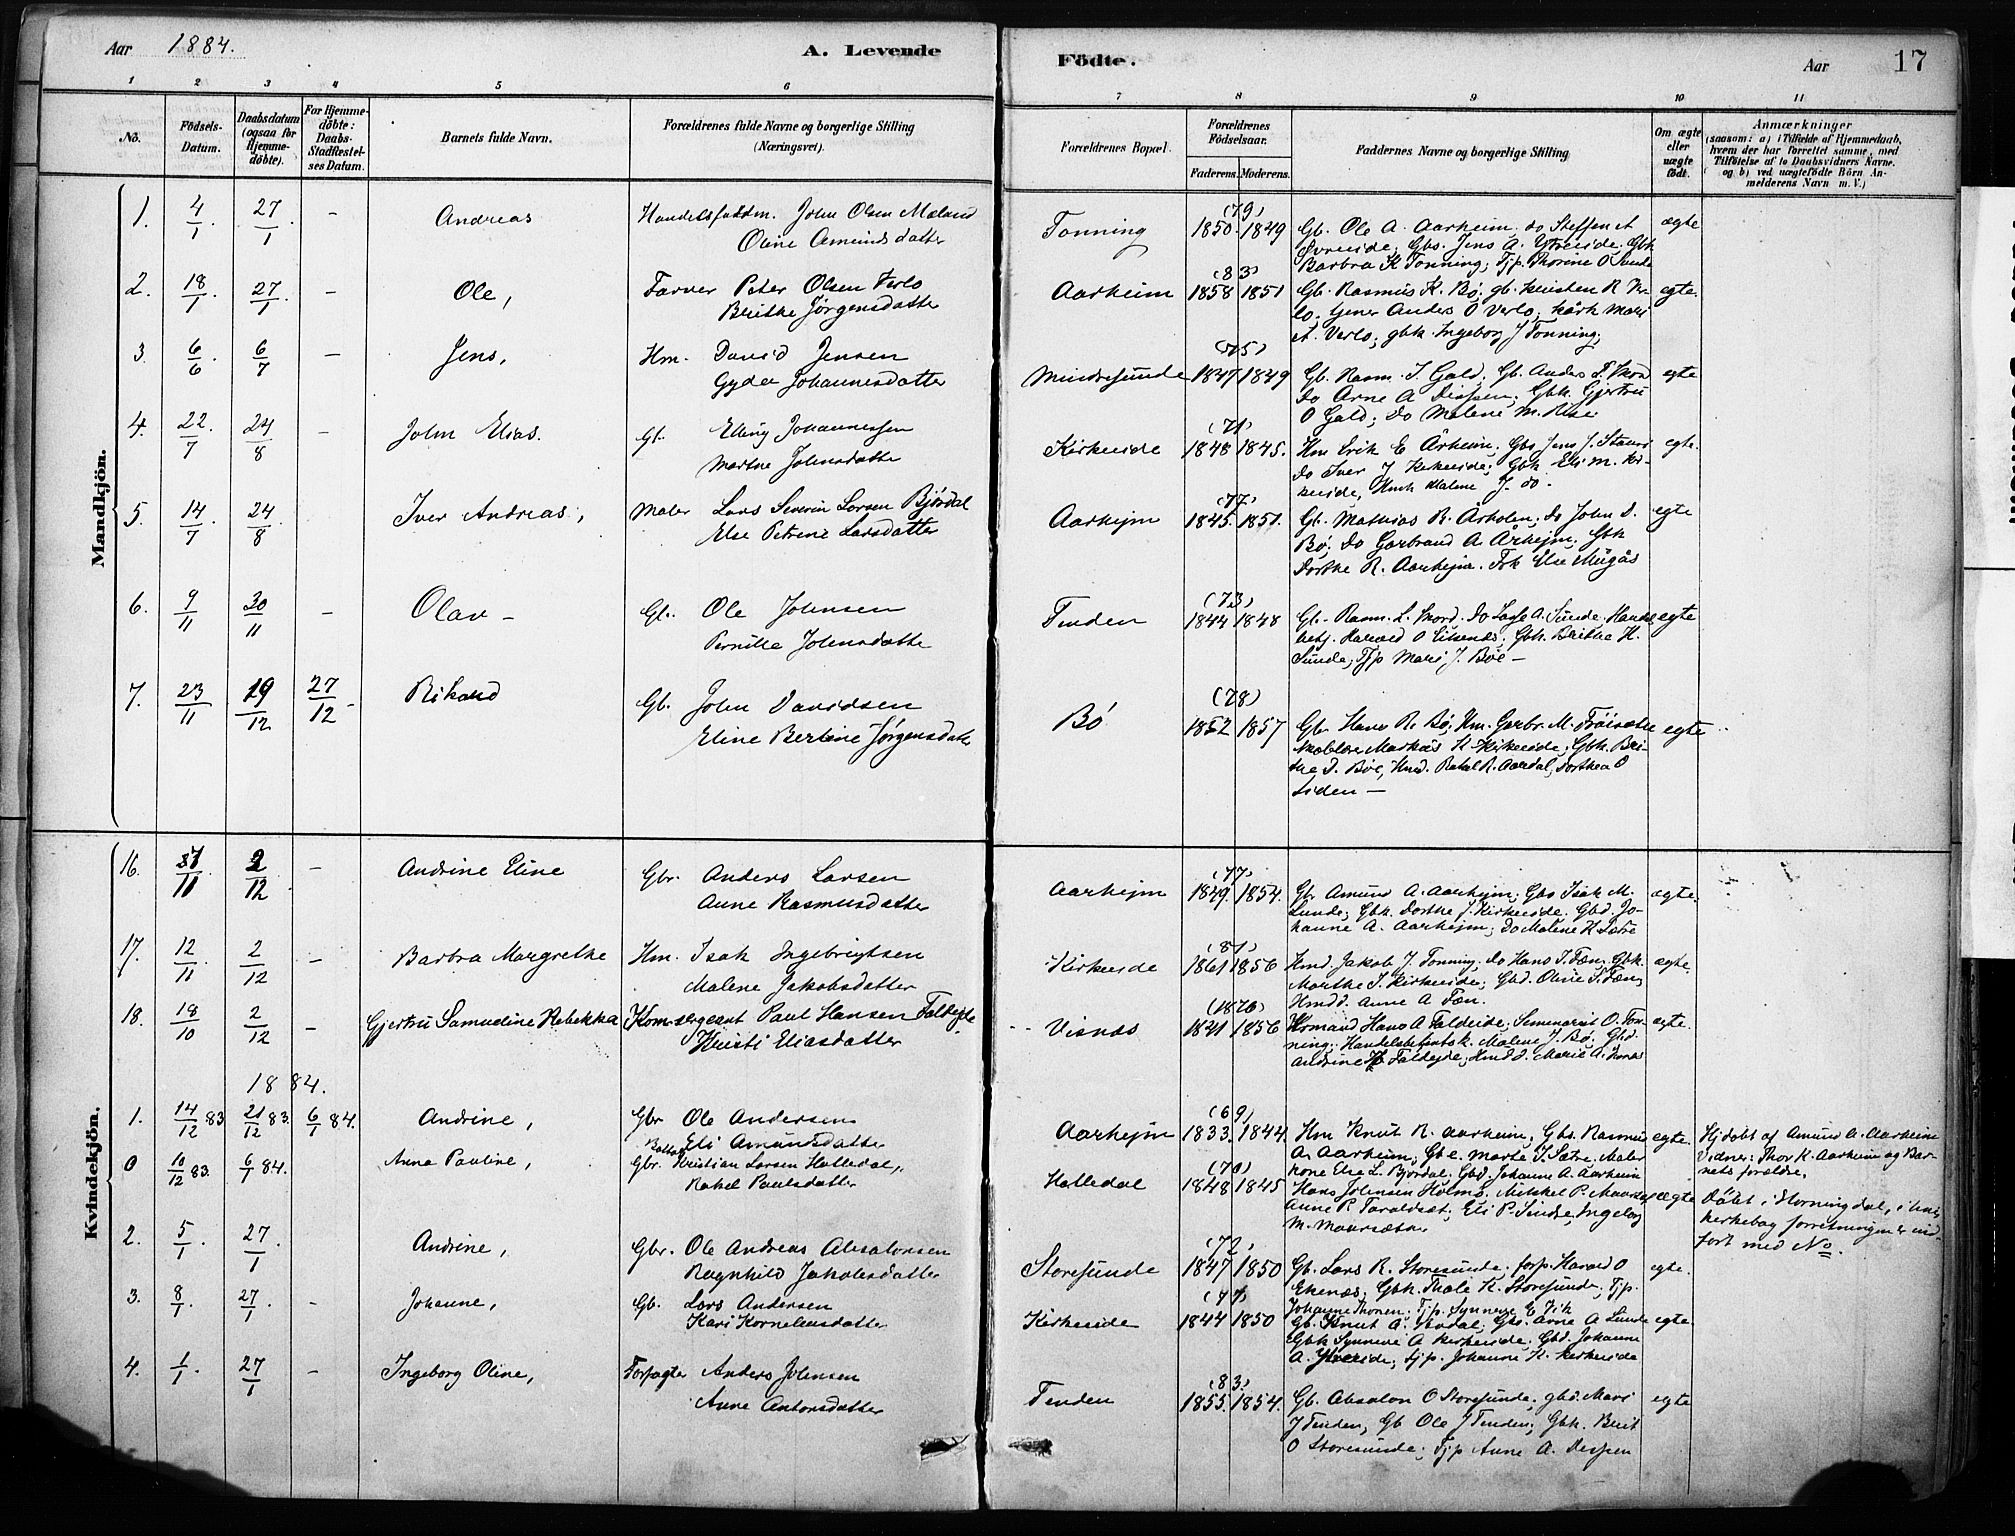 Aar 1884.
A. Levende
Födte.
Aar
17
1 2 3 4 5 6 7 8 9 10 11
No.
Födsels-Datum.
Daabsdatum (ogsaa for Hjemme-döbte).
For Hjemme-döbte: Daabs-Stadfæstel-ses Datum.
Barnets fulde Navn.
Forældrenes fulde Navne og borgerlige Stilling (Næringsvei).
Forældrenes Bopæl.
Forældrenes Födselsaar.
Faderens. Moderens.
Faddernes Navne og borgerlige Stilling
Om ægte eller uægte födt.
Anmærkninger
(saasom: a) i Tilfælde af Hjemmedaab, hvem der har forrettet samme, med Tilföielse af to Daabsvidners Navne. og b) ved uægtefödte Börn An-melderens Navn m. V.)
Mandkjön.
1. 4/1 27/1 - Andreas
John Olsen Mæland
Oline Amundsdatter
Tonning (79) 1850. 1849
Gb. Ole A. Aarheim, do Steffen A
Øvreeide; Gbs. Jens A. Ytreeide, Gbk
Barbra K Tonning; Tjp. Thorine O Sunde
ægte
2. 18/1 27/1 - Ole,
Farver Peter Olsen Verlo
Brithe Jørgensdatter
Aarheim (83) 1858 1851
Gb. Rasmus K. Bø; gb. Kristen R Ver-
lo, Anders O Verlo; Mari
A. Verlo, gbk. Ingeborg J Tonning,
egte.
3. 6/6 6/7 - Jens,
Hm. David Jensen
Gyda Johannesdatter
Mindresunde (75) 1847 1849
Gb. Rasm. I. Gald, Gb. Anders
do Arne A Dispen; Gbk. Gjertru
O Gald; do Malene M. Rise
egte
4. 22/7 24/8 - John Elias.
Gb. Elling Johannessen
Marthe Johnsdatter
Kirkeeide (71) 1848 1845.
Hm Erik E Årheim, Gbs Jens J.
do Iver J Kirkeeide; Gbk Eli M. Kir-
keeide, Hmk Malene J. do.
egte.
5. 14/7 24/8 Iver Andreas,
Maler Lars Severin Larsen Bjørdal
Else Petrine Larsdatter
Aarhejm (77) 1845 1851.
Gb. Mathias R. Årholen; do John D.
Bø; do Garbrand A. Århejm; Gbk
Dorthe R. Aarhejm. Else
egte
6. 9/11 30/11 - Olav -
Gb. Ole Johnsen
Pernille Johnsdatter
Tenden (73) 1844 1848
Gb. Rasm. L. Skord. do A. Sunde,
O Eikenæs, Gbk. Brithe H.
Sunde; Tjp Mari J. Bøe -
egte
7. 23/11 19/12 27/12 - Rikard
Gb. John Davidsen
Eline Bertine Jørgensdatter
Bø (78) 1852 1857
Gb. Hans R. Bø; Hm. Garbr. M. Frøisæte
Markus K Kirkeeide; Gbk. Bri-
the D. Bøe, Hmd. Rakel R. Aardal, Dorthea O
Liden -
egte
Kvindekjön.
16. 2/12 - Andrine Eline
Gbr. Anders Larsen
Anne Rasmusdatter
Aarhejm (77) 1849. 1854.
Gbr Amund A. Aarhejm; Gbs Isak M.
Sunde; Gbk. Dorthe J. Kirkeeide. Gbd. Jo-
hanne A. Aarhejm; do Malene H Sætre
ægte.
17. 12/11 2/12 - Barbra Margrethe
Hm. Isak Ingebrigtsen
Malene Jakobsdatter
Kirkeeide (81) 1861 1856
Hmd. Jakob J. Tonning; do Hans I. Føn; Gbk.
Marthe I. Kirkeeide; Gbd. Oline I. Føn,
Hmdd. Anne A Føn.
ægte.
18. 18/10 2/12 - Gjertru Samueline Rebekka
Kom.sergeant Paul Hansen Faldejde
Kristi Eliasdatter
Visnæs (1876) 1841 1856
Hans A Faldeide; Seminarist O. Ton-
ning; Malene J. Bø; Gbd.
Andrine H Faldejde; Hmdd. Marie A.
ægte.
1884.
1. 14/12 83 21/12 83. 6/1 84. Andrine,
Gbr Ole Andersen
Eli Amundsdatter
Aarhejm (69) 1833. 1844.
Hm Knut R. Aarheim; Gbs. Rasmus
A. Aarheim; Gbe. Marte I. Sætre. Maler
kone Else L. Bjørdal; Gbd. Johanne A. Aarheim
egte.
Hjdøbt af Amund A. Aarheim
Vidner: Thor K. Aarheim og Bar-
nets forældre.
0 10/12 83. 6/1 84. Anna Pauline,
Gbr. Kristian Larsen Halledal,
Rakel Paulsdatter
Halledal (70) 1848 1845
Hans Johnsen Holmø, Mikkel P. Maursæt
Anne P. Taraldset; Eli P. Sindre, Ingeborg
M. Maursæter
ægte
Døbt i Horningdal, i hvis
kirkebog forretningen er ind-
ført med No.
2. 5/1. 27/1. Andrine,
Gbr. Ole Andreas Absalonsen
Ragnhild Jakobsdatter
Storesunde (72) 1847 1850
Gb. Lars R. Storesunde. forp. Harald O
Ekenæs; Gbk. Thale K. Storesunde; Tjp.
Johanne Thonen; Tjp. Synneve E Vik
egte.
3. 8/1. 27/1. - Johanne,
Gb. Lars Andersen
Kari Korneliusdatter
Kirkeeide (77) 1844 1850
Gb. Knut A. Gbs. Arne A Sunde
Gbk Synneve A Kirkeeide; Gbd. Johanne
A. Ytreeide; tjp. Johanne K. Kirkeeide
egte.
4. 1/1 27/1 - Ingeborg Oline,
Forpagter Anders Johnsen
Anne Antonsdatter
Tenden (83) 1855. 1854.
Gb. Absalon O Storesunde; gbd. Mari
J Tenden; Gb Ole J Tenden; Gbk. Brit
O Storesunde; Tjp Anne A. Dispen
egte